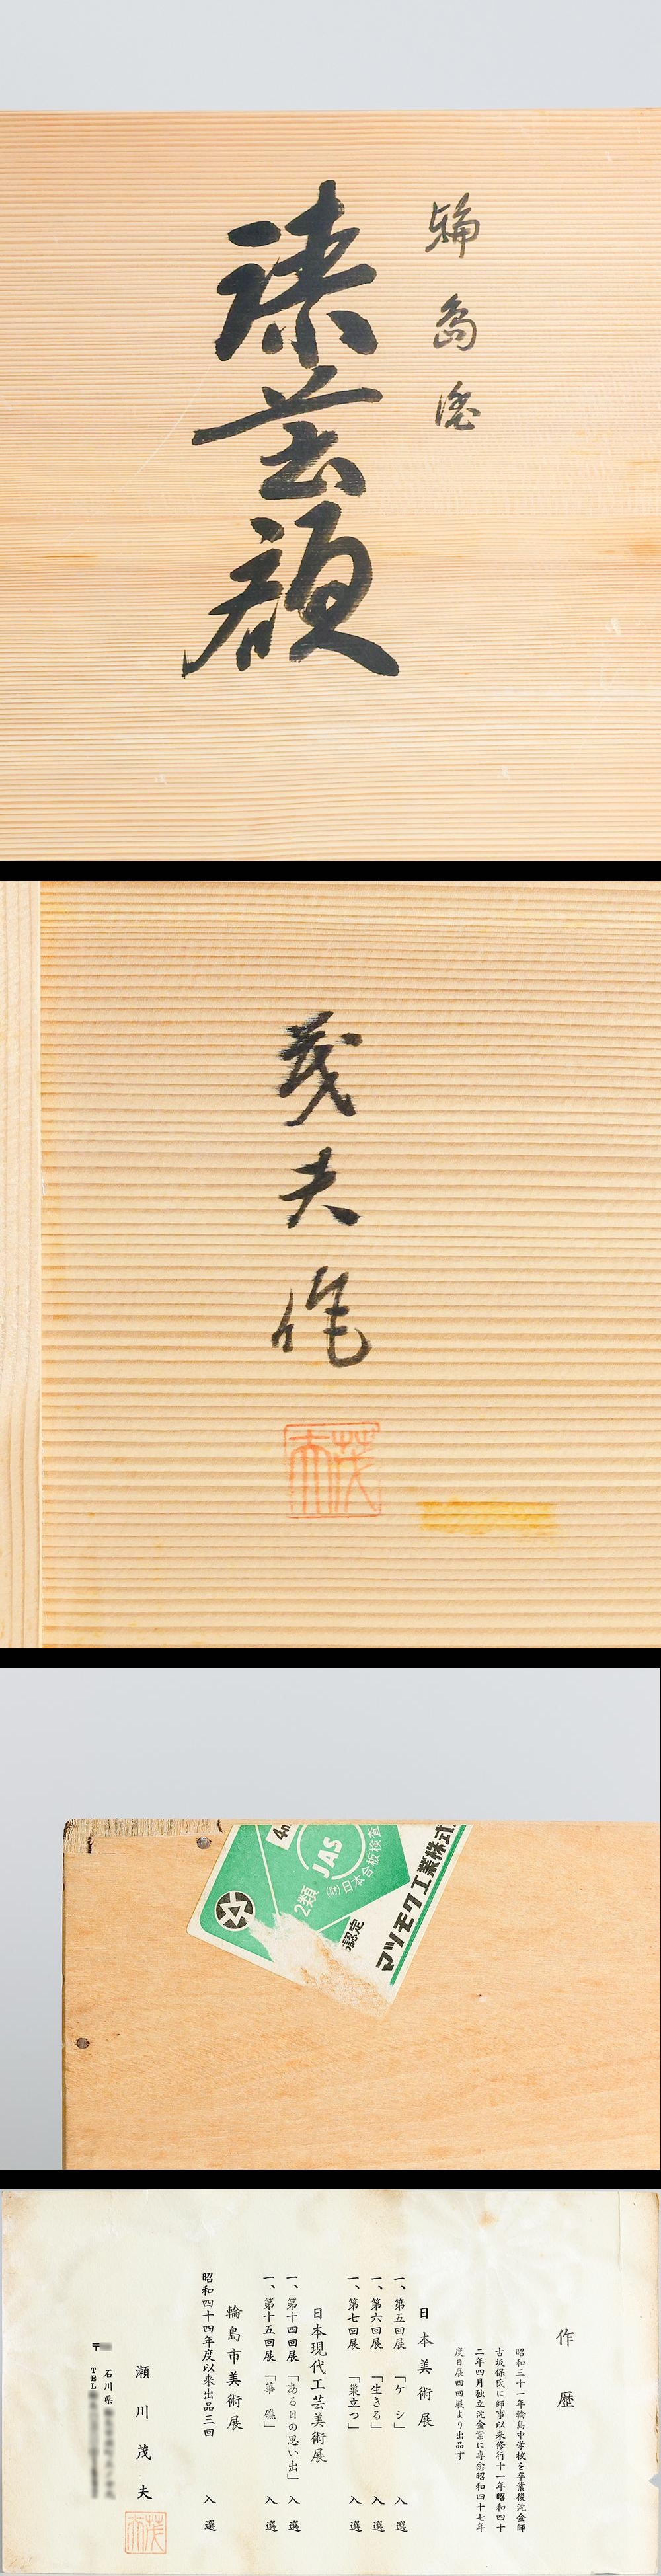 輪島塗
漆芸額
茂夫作
茂夫
4m
JAS
2類
(財)日本合板検査
認定
マツモク工業株式
作歴
昭和三十一年輪島中学校を卒業後沈金師
古坂保氏に師事以来修行十一年昭和四十
二年四月独立沈金業に専念昭和四十七年
度日展四回展より出品す
日本美術展
一、第五回展「ケシ」入選
一、第六回展「生きる」入選
一、第七回展「巣立つ」入選
日本現代工芸美術展
一、第十四回展「ある日の思い出」入選
一、第十五回展「華礁」入選
輪島市美術展
昭和四十四年度以来出品三回入選
瀬川茂夫
茂夫
石川県
〒
TEL